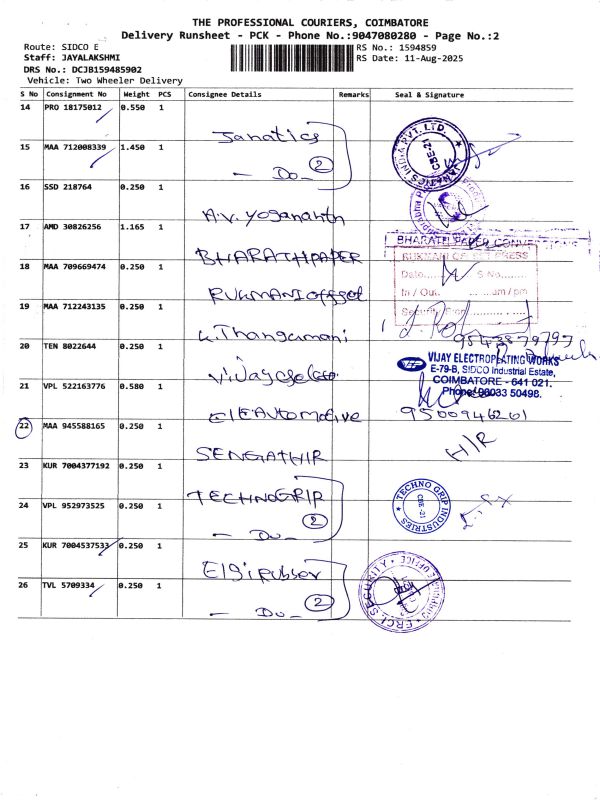 THE PROFESSIONAL COURIERS, COIMBATORE
Delivery Runsheet - PCK - Phone No.:9047080280 - Page No.:2
Route: SIDCO E
RS No.: 1594859
Staff: JAYALAKSHMI
RS Date: 11-Aug-2025
DRS No.: DCJB159485902
Vehicle: Two Wheeler Delivery
S No Consignment No Weight PCS Consignee Details Remarks Seal & Signature
14 PRO 18175012 0.550 1 Janatics
15 MAA 712008339 1.450 1 - Do - 2
16 SSD 218764 0.250 1 A.V. Yogananth
17 AMD 30826256 1.165 1 BHARATHPAPER
BHARATH PAPER
18 MAA 709669474 0.250 1 RUKMANI offset
RUKMANI OFFSET PRESS
Date..... S No.....
In / Out ..... am / pm
Security Sign
19 MAA 712243135 0.250 1 K. Thangamani
9543879797
20 TEN 8022644 0.250 1
VIJAY ELECTROPLATING WORKS
E-79-B, SIDCO Industrial Estate,
COIMBATORE - 641 021.
Phone: 98033 50498.
21 VPL 522163776 0.580 1 ElEAutomotive
9500946201
22 MAA 945588165 0.250 1 SENGATHIR
H/R
23 KUR 7004377192 0.250 1 TECHNOGRIP
TECHNO GRIP INDUSTRIES
CBE-21
24 VPL 952973525 0.250 1 - Do - 2
25 KUR 7004537533 0.250 1 Elgi rubber
26 TVL 5709334 0.250 1 - Do - 2
SECURITY